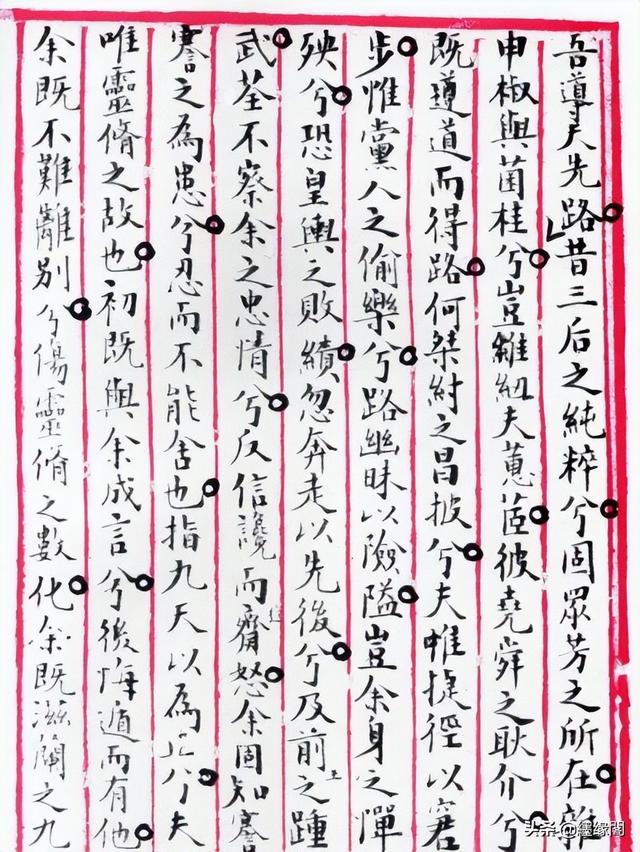 吾導夫先路昔三后之純粹兮固眾芳之所在雜
申椒與菌桂兮豈維紐夫蕙茝彼堯舜之耿介兮
既遵道而得路何桀紂之昌披兮夫唯捷徑以窘
步惟黨人之偷樂兮路幽昧以險隘豈余身之憚
殃兮恐皇輿之敗績忽奔走以先後兮及前王之踵
武荃不察余之忠情兮反信讒而齌怒余固知謇
謇之為患兮忍而不能舍也指九天以為正兮夫
唯靈脩之故也初既與余成言兮後悔遁而有他
余既不難離別兮傷靈脩之數化余既滋蘭之九
头条@繾缘閣